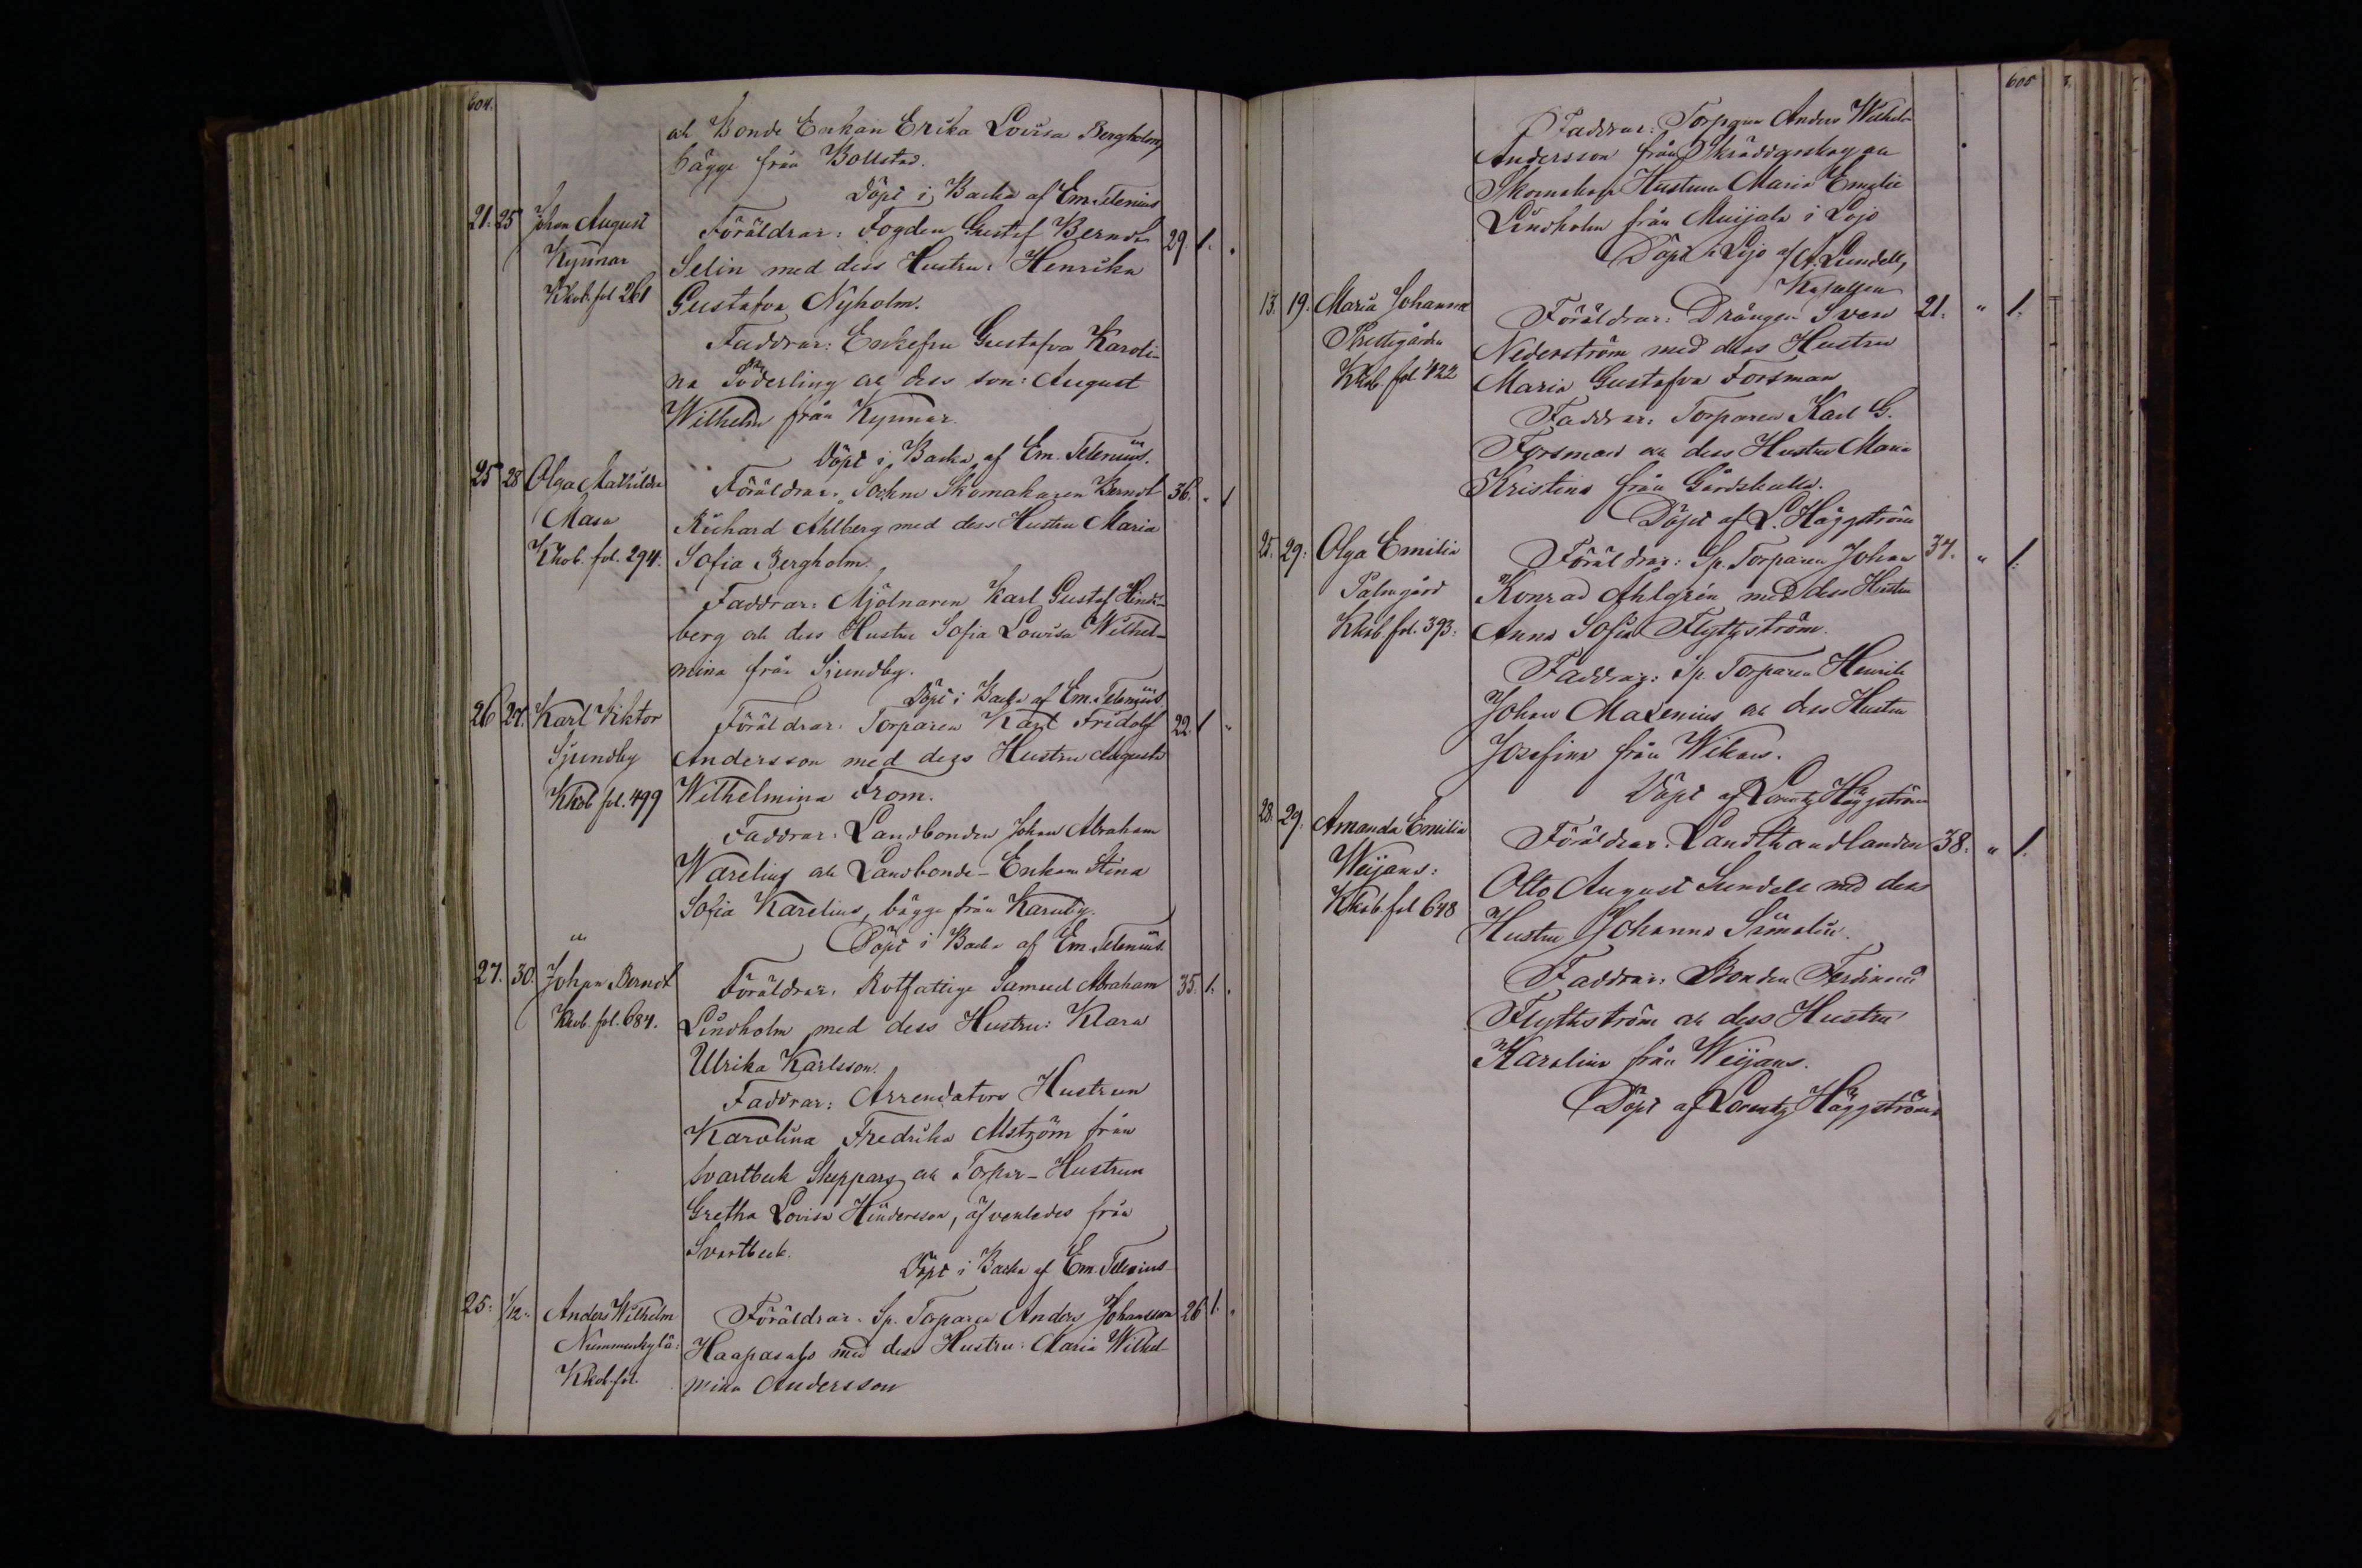 604.
och Bonde Enkan Erika Lovisa Bergholm,
bägge från Bollstad.
Döpt i Backa af Em. Telenius
21. 25 Johan August Föräldrar: Fogden Gustaf Berndt 29. 1. "
Kynnar Selin med dess Hustru: Henrika
Kkob. fol. 261 Gustafva Nyholm.
Faddrar: Enkefru Gustafva Karoli-
na Söderling och dess son: August
Wilhelm från Kynnar.
Döpt i Backa af Em. Telenius.
25 28 Olga Mathilda Föräldrar: Sockne Skomakaren Berndt 36. " 1
Masa Richard Ahlberg med dess Hustru Maria
Kkob. fol. 294. Sofia Bergholm.
Faddrar: Mjölnaren Karl Gustaf Hinds-
berg och dess Hustru Sofia Lowisa Wilhel-
mina från Sjundby.
Döpt i Backa af Em. Telenius
26 27. Karl Viktor Föräldrar: Torparen Karl Fridolf 22. 1 "
Sjundby Andersson med dess Hustru Augusta
Kkob fol. 499 Wilhelmina From.
Faddrar: Landbonden Johan Abraham
Warelius och Landbonde-Enkan Stina
Sofia Karelius, bägge från Karuby.
Döpt i Backa af Em. Telenius
27. 30. Johan Berndt Föräldrar: Rotfattige Samuel Abraham 35. 1. "
Kkob. fol. 684. Lindholm med dess Hustru: Klara
Ulrika Karlsson.
Faddrar: Arrendators Hustrun
Karolina Fredrika Alström från
Svartbeck Skeppars och Torpar-Hustrun
Gretha Lovisa Hindersson, äfvenledes från
Svartbeck.
Döpt i Backa af Em. Telenius
25. 1/12. Anders Wilhelm Föräldrar: Sp. Torparen Anders Johansson 26 1. "
Nummenkylä: Haapasalo med dess Hustru: Maria Wilhel-
Kkob. fol. mina Andersson
605
Faddrar: Torparen Anders Wilhelm
Andersson från Skräddarskog och
Skomakar Hustrun Maria Emelie
Lindholm från Muijala i Lojo
Döpt i Lojo af A. Lundell,
Kapellan
13. 19. Maria Johanna Föräldrar: Drängen Sven 21. " 1.
Prestgården Nederström med dess Hustru
Kkob. fol. 422 Maria Gustafva Forsman
Faddrar: Torparen Karl G.
Forsman och dess Hustru Maria
Kristina från Gårdskulla.
Döpt af L. Häggström
25. 29. Olga Emilia Föräldrar: Sp. Torparen Johan 37. " 1.
Palmgård Konrad Ahlgrén med dess Hustru
Kkob. fol. 393. Anna Sofia Flythström.
Faddrar: Sp. Torparen Henrik
Johan Malenius och dess Hustru
Josefina från Wikars.
Döpt af Lorentz Häggström
28. 29. Amanda Emilia Föräldrar: Landthandlanden 38. " 1.
Weijans: Otto August Sundell med dess
Kkob. fol 648 Hustru Johanna Sämalin.
Faddrar: Bonden Ferdinand
Flythström och dess Hustru
Karolina från Weijans.
Döpt af Lorentz Häggström